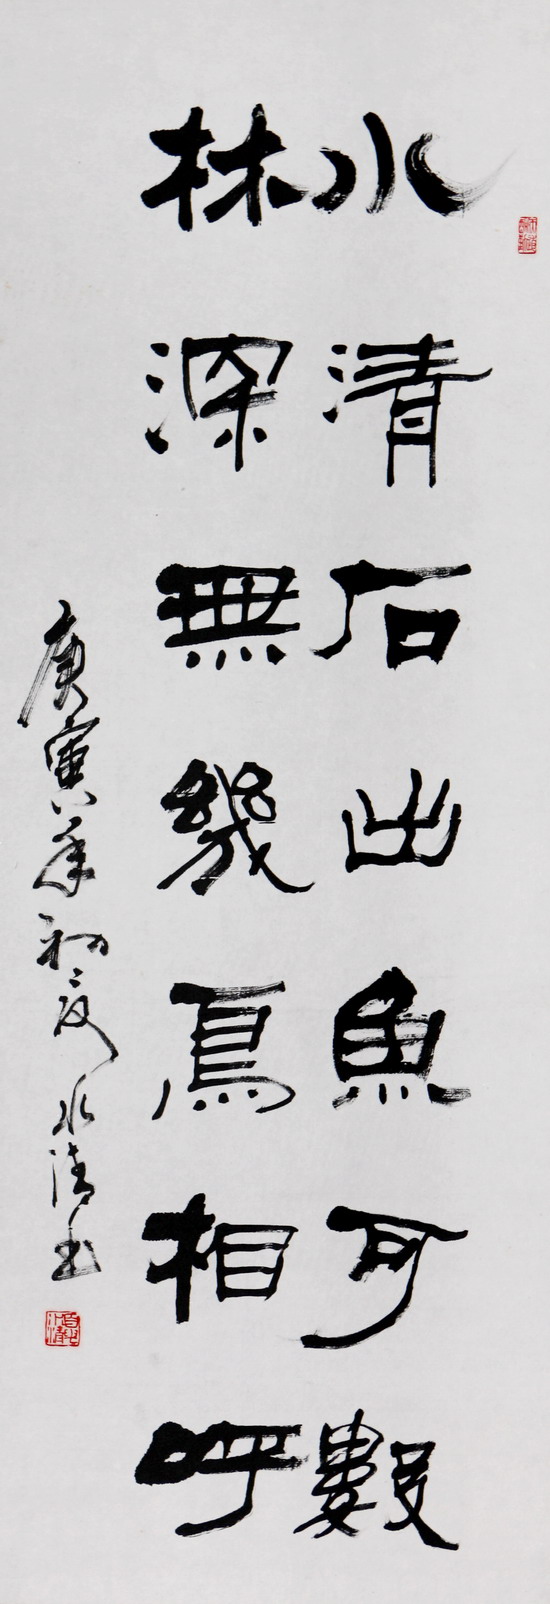 水清石出魚可數
林深無幾鳥相呼
庚寅年初夏水清書